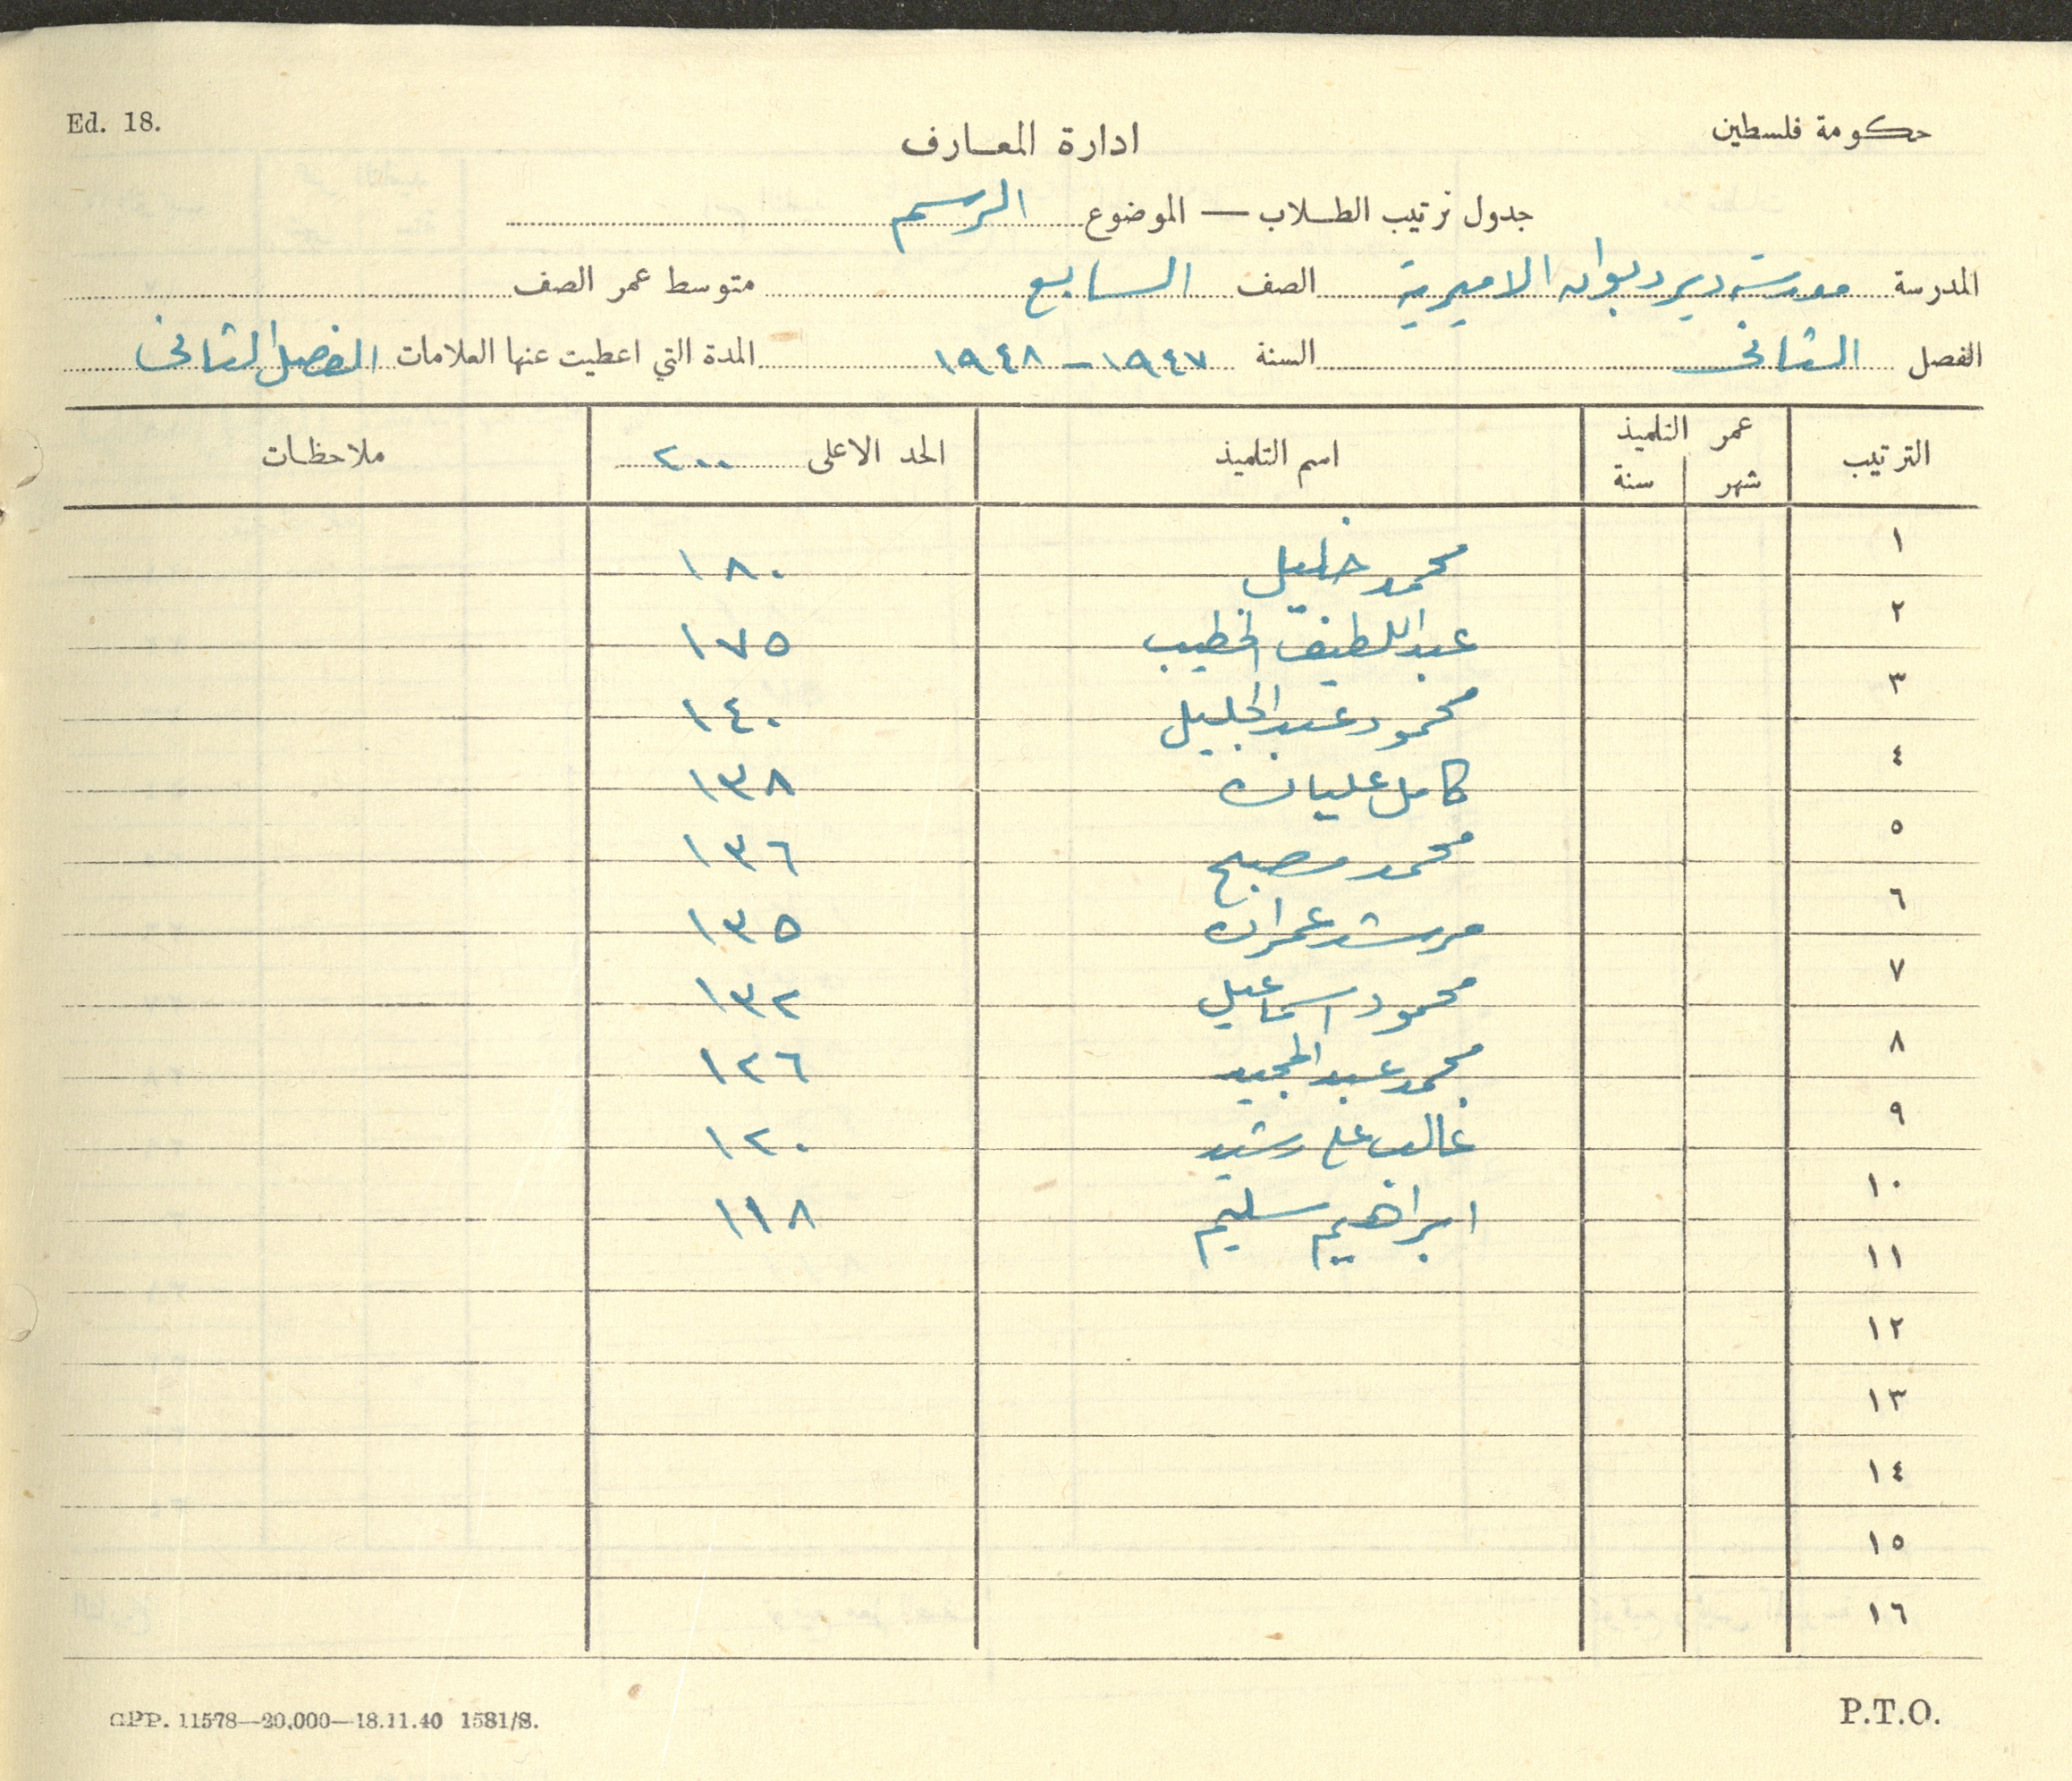 Ed. 18.
حكومة فلسطين
ادارة المعارف
جدول ترتيب الطلاب — الموضوع الرسم
المدرسة مدرسة دير ديوان الاميرية الصف السابع متوسط عمر الصف
الفصل الثاني السنة ١٩٤٧ - ١٩٤٨ المدة التي اعطيت عنها العلامات الفصل الثاني
الترتيب عمر التلميذ اسم التلميذ الحد الاعلى ٢٠٠ ملاحظات
شهر سنة
١ محمد خليل ١٨٠
٢ عبد اللطيف الخطيب ١٧٥
٣ محمود عبد الجليل ١٤٠
٤ كامل عليان ١٣٨
٥ محمد مصبح ١٣٦
٦ مرشد عمران ١٣٥
٧ محمود اسماعيل ١٣٢
٨ محمد عبد المجيد ١٢٦
٩ غالب علي رشيد ١٢٠
١٠ ابراهيم سليم ١١٨
١١
١٢
١٣
١٤
١٥
١٦
GPP. 11578—20,000—18.11.40 1581/S.
P.T.O.